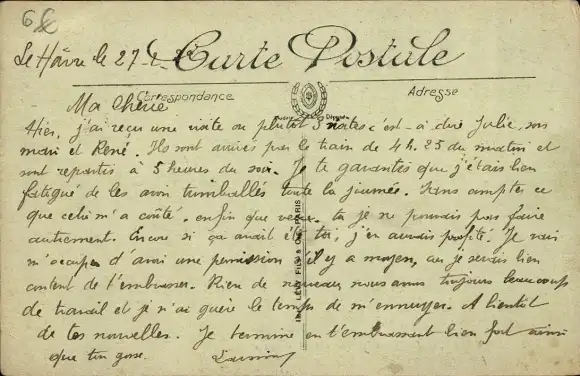 Le Hâvre le 27-
Carte Postale
Correspondance
Adresse
Ma Chérie
Hier, j'ai reçu une visite ou plutôt 3 visites c'est-à dire Julie, son
mari et René. Ils sont arrivés par le train de 4h.25 du matin et
sont repartis à 5 heures du soir. Je te garantis que j'étais bien
fatigué de les avoir trimballés toute la journée. Sans compter ce
que celui m'a coûté. enfin que veux-tu je ne pouvais pas faire
autrement. Encore si ça avait été toi, j'en aurais profité. Je vais
m'occuper d'avoir une permission s'il y a moyen, car je serais bien
content de t'embrasser. Rien de nouveau nous avons toujours beaucoup
de travail et je n'ai guère le temps de m'ennuyer. A bientôt
de tes nouvelles. Je termine en t'embrassant bien fort ainsi
que ton gosse.
PARIS